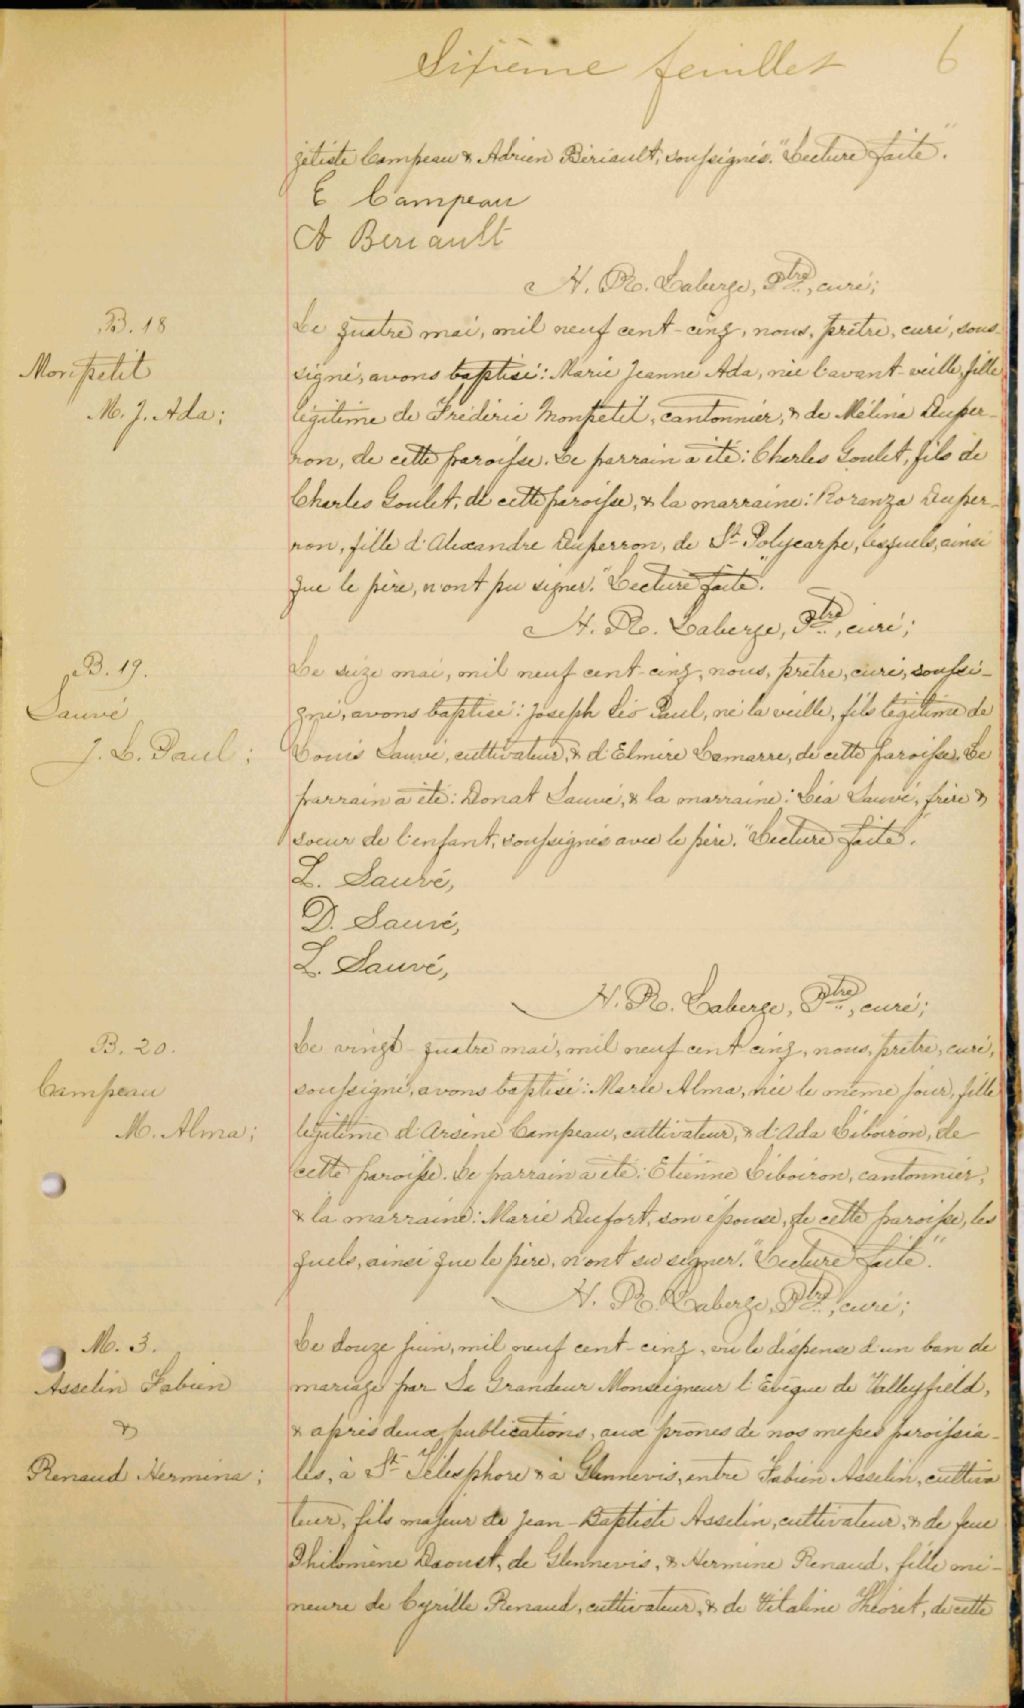 Sixième feuillet 6
jetiste Campeau & Adrien Bériault, soussignés. "Lecture faite".
E Campeau
A Beriault
H. R. Laberge, Ptre, curé;
B. 18
Monpetit
M. J. Ada;
Le quatre mai, mil neuf cent-cinq, nous, prêtre, curé, sous-
signé, avons baptisé: Marie Jeanne Ada, née l'avant-veille, fille
légitime de Frédéric Monpetit, cantonnier, & de Mélina Duper-
ron, de cette paroisse. Le parrain a été: Charles Goulet, fils de
Charles Goulet, de cette paroisse, & la marraine: Roranza Duper-
ron, fille d'Alexandre Duperron, de St Polycarpe, lesquels, ainsi
que le père, n'ont pu signer. "Lecture faite."
H. R. Laberge, Ptre, curé;
B. 19.
Sauvé
J. L. Paul;
Le seize mai, mil neuf cent-cinq, nous, prêtre, curé, soussi-
gné, avons baptisé: Joseph Léo Paul, né la veille, fils légitime de
Louis Sauvé, cultivateur, & d'Elmire Lamarre, de cette paroisse. Le
parrain a été: Donat Sauvé, & la marraine: Léa Sauvé, frère &
soeur de l'enfant, soussignés avec le père. "Lecture faite".
L. Sauvé,
D. Sauvé,
L. Sauvé,
H. R. Laberge, Ptre, curé;
B. 20.
Campeau
M. Alma;
Le vingt-quatre mai, mil neuf cent cinq, nous, prêtre, curé,
soussigné, avons baptisé: Marie Alma, née le même jour, fille
légitime d'Arsène Campeau, cultivateur, & d'Ada Liboiron, de
cette paroisse. Le parrain a été: Etienne Liboiron, cantonnier,
& la marraine: Marie Dufort, son épouse, de cette paroisse, les
quels, ainsi que le père, n'ont su signer. "Lecture faite".
H. R. Laberge, Ptre, curé;
M. 3.
Asselin Fabien
&
Renaud Hermina;
Le douze juin, mil neuf cent-cinq, vu le dispense d'un ban de
mariage par Sa Grandeur Monseigneur l'Evêque de Valleyfield,
& après deux publications, aux prônes de nos messes paroissia-
les, à St Télesphore & à Glennevis, entre Fabien Asselin, cultiva
teur, fils majeur de Jean-Baptiste Asselin, cultivateur, & de feue
Philomène Daoust, de Glennevis, & Hermine Renaud, fille mi-
neure de Cyrille Renaud, cultivateur, & de Vitaline Théoret, de cette